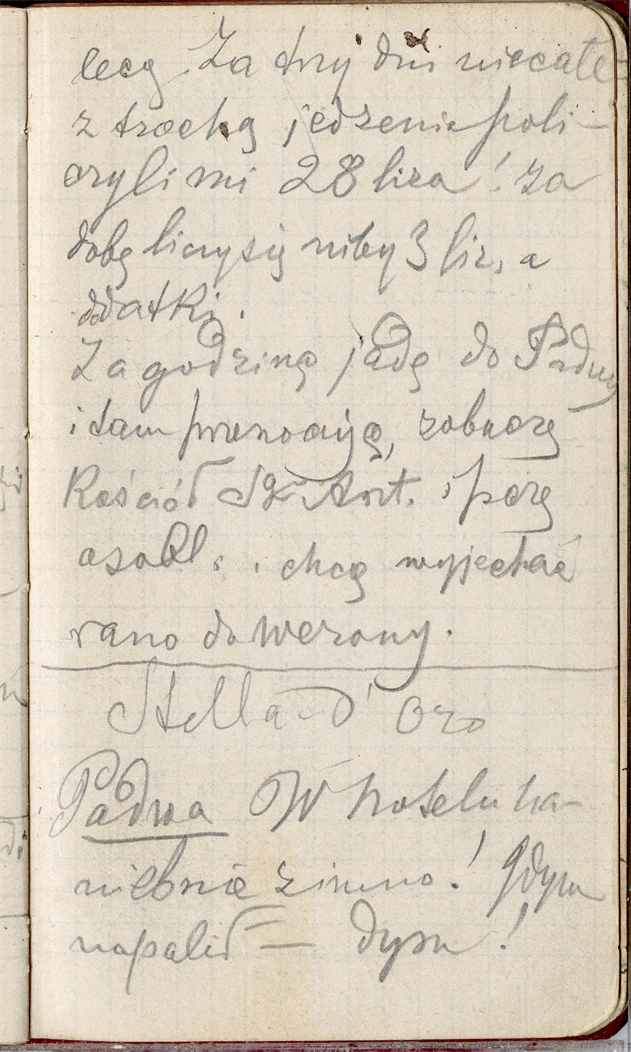 lecą. Za trzy dni niecałe
z trochą jedzenia poli-
czyli mi 28 lira! za
dobę liczy się niby 3 lir, a
dodatki.
Za godzinę jadę do Padwy
i tam przenocuję, zobaczę
Kościół Sgo Ant. i parę
osobl. . chcę wyjechać
rano do Werony.
Stella d'Oro
Padwa W hotelu ha-
niebnie zimno! Gdym
napalił — dym!